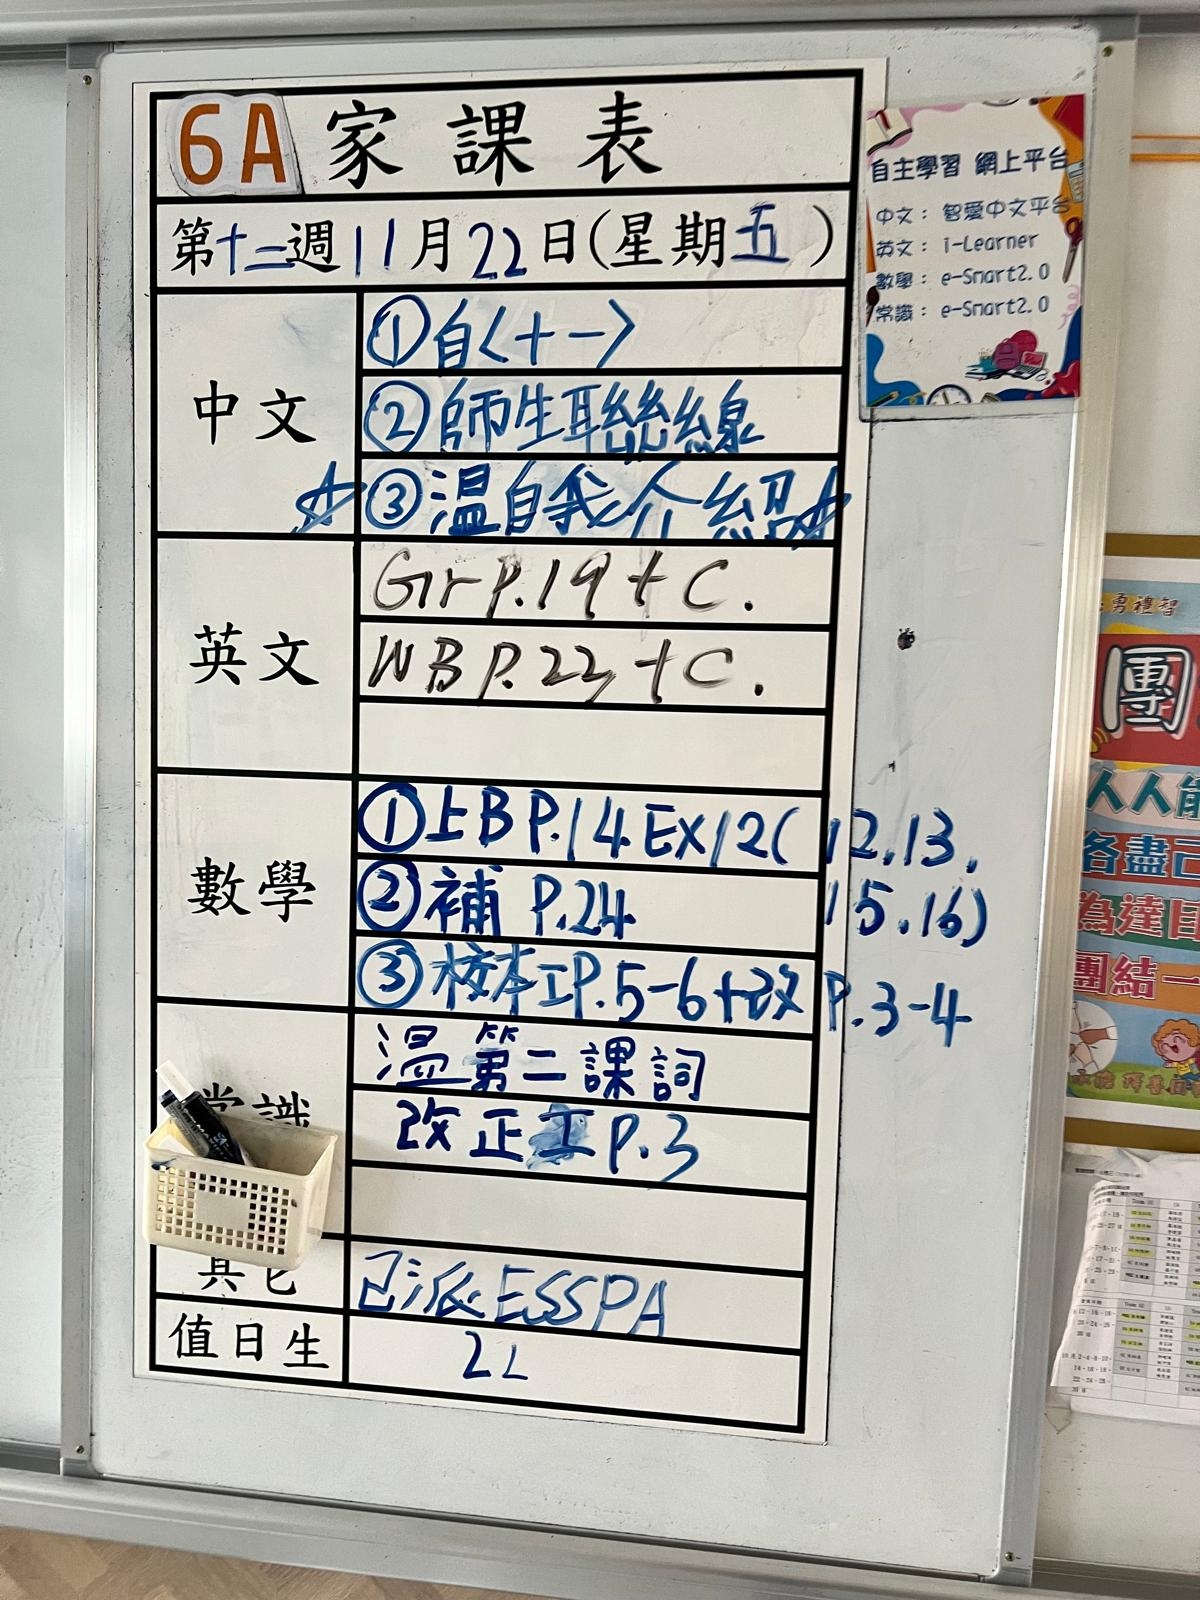 6A 家課表
第十二週 11月22日(星期五)
中文
①自<十一>
②師生聯絡線
☆③温自我介紹☆
英文
Gr P.19 + C.
WB P.22 + C.
數學
①上B P.14 Ex12( 12.13,
15.16)
②補 P.24
③校本工P.5-6+改 P.3-4
常識
温第二課詞
改正工 P.3
其它
已派ESSPA
值日生
22
自主學習 網上平台
中文： 智愛中文平台
英文： i-Learner
數學： e-Smart2.0
常識： e-Smart2.0
勇禮智
團
人人能
各盡己
為達目
團結一